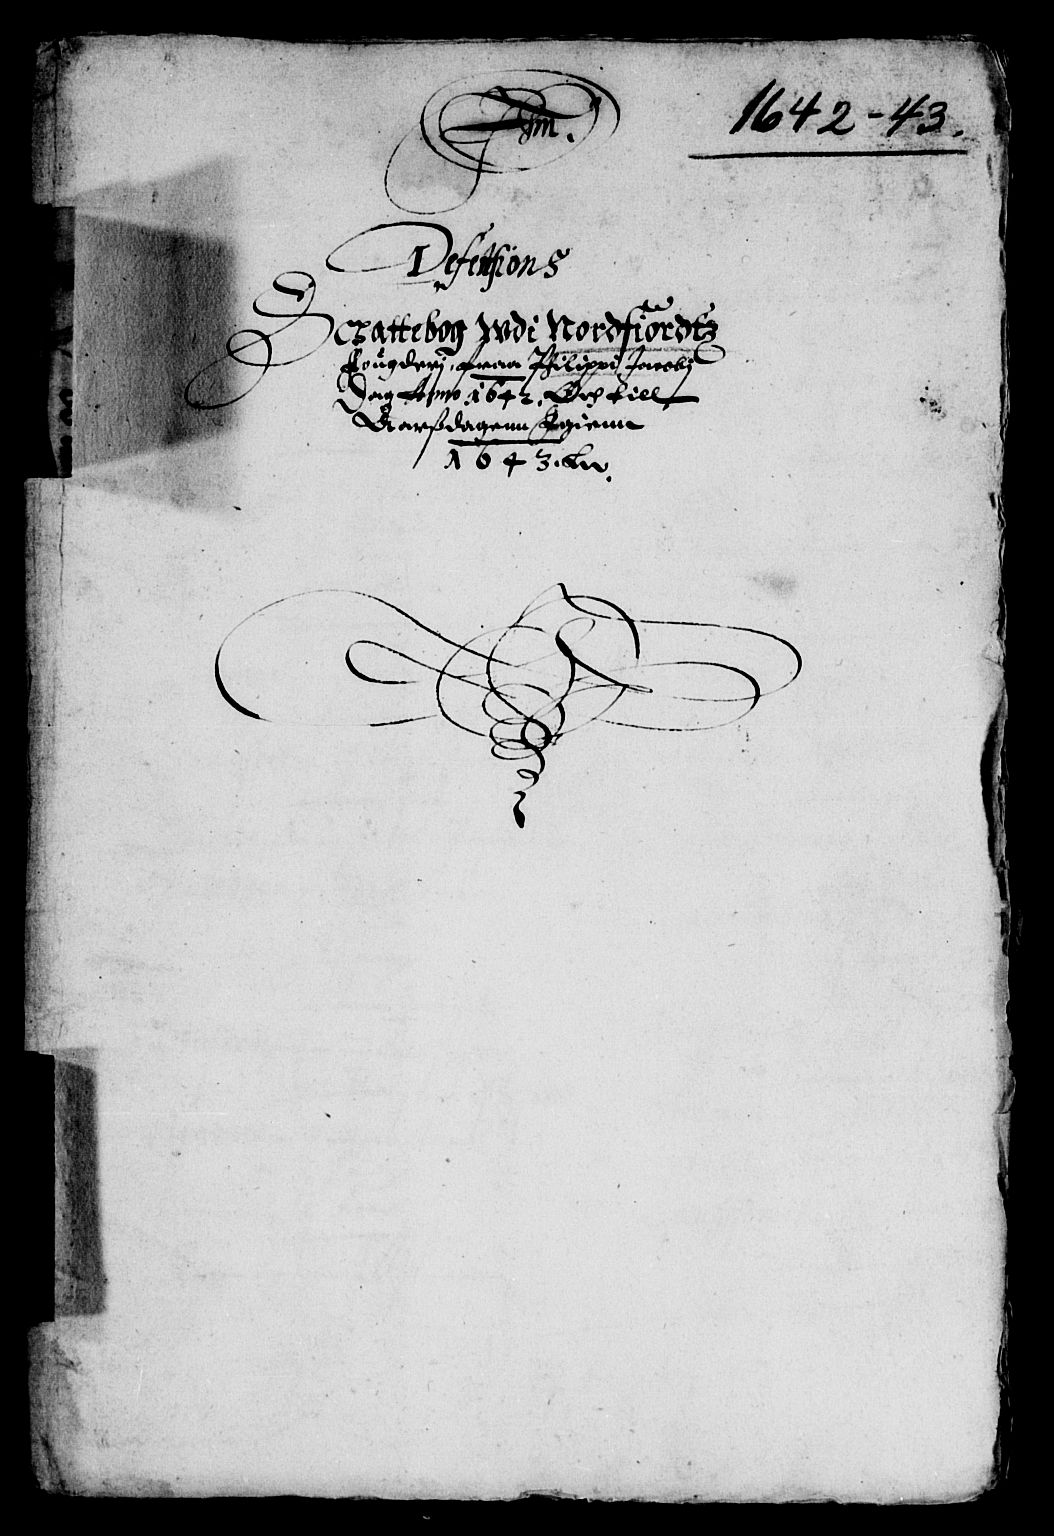 1642-43.
Defensions
Schattebog Udi Nordfiordtz
Fougderj, fraa Philippi Jacobj
Dag Anno 1642. Och till
Aarßdagenn Igienn
1643.